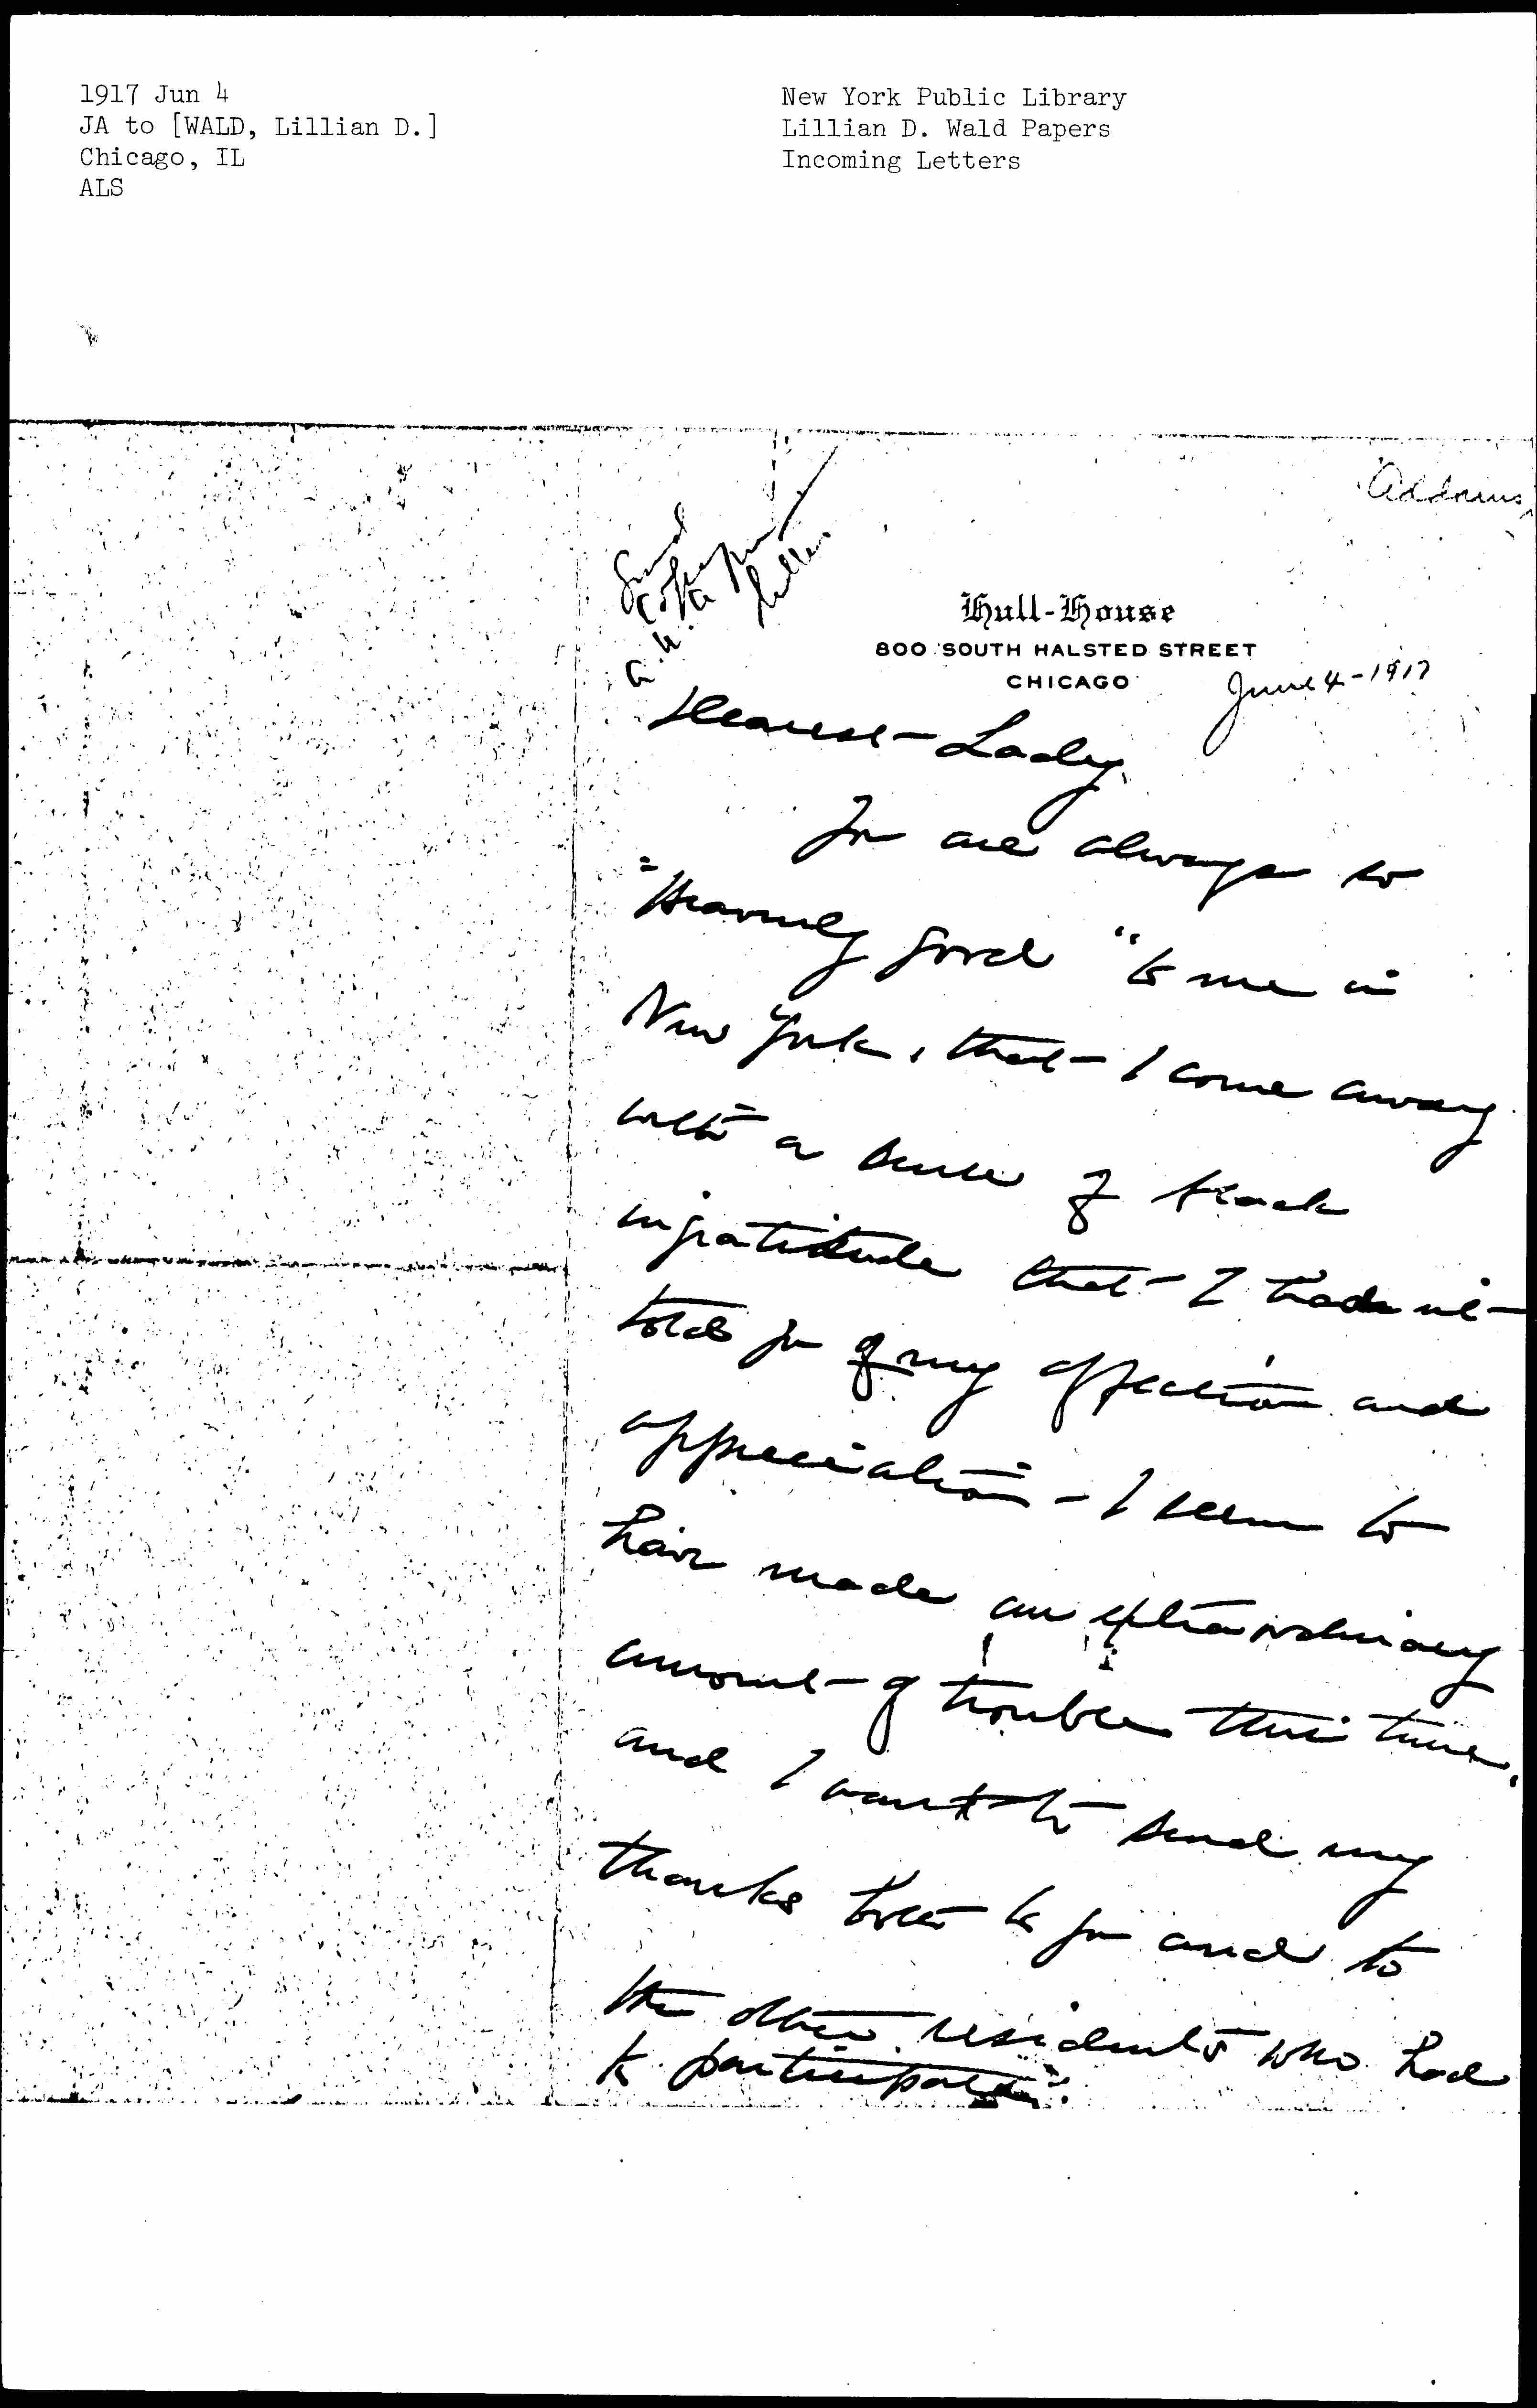 1917 Jun 4
JA to [WALD, Lillian D.]
Chicago, IL
ALS
New York Public Library
Lillian D. Wald Papers
Incoming Letters
Addams,
Send
copy
letter
Hull-House
800 SOUTH HALSTED STREET
CHICAGO
June 4 - 1917
Dearest Lady
You are always so
"Heavenly good" to me in
New York, that I come away
with a sense of black
ingratitude that I had not
told you of my affection and
appreciation - I seem to
have made an extraordinary
amount of trouble this time,
and I want to send my
thanks both to you and to
the other residents who had
to participate.